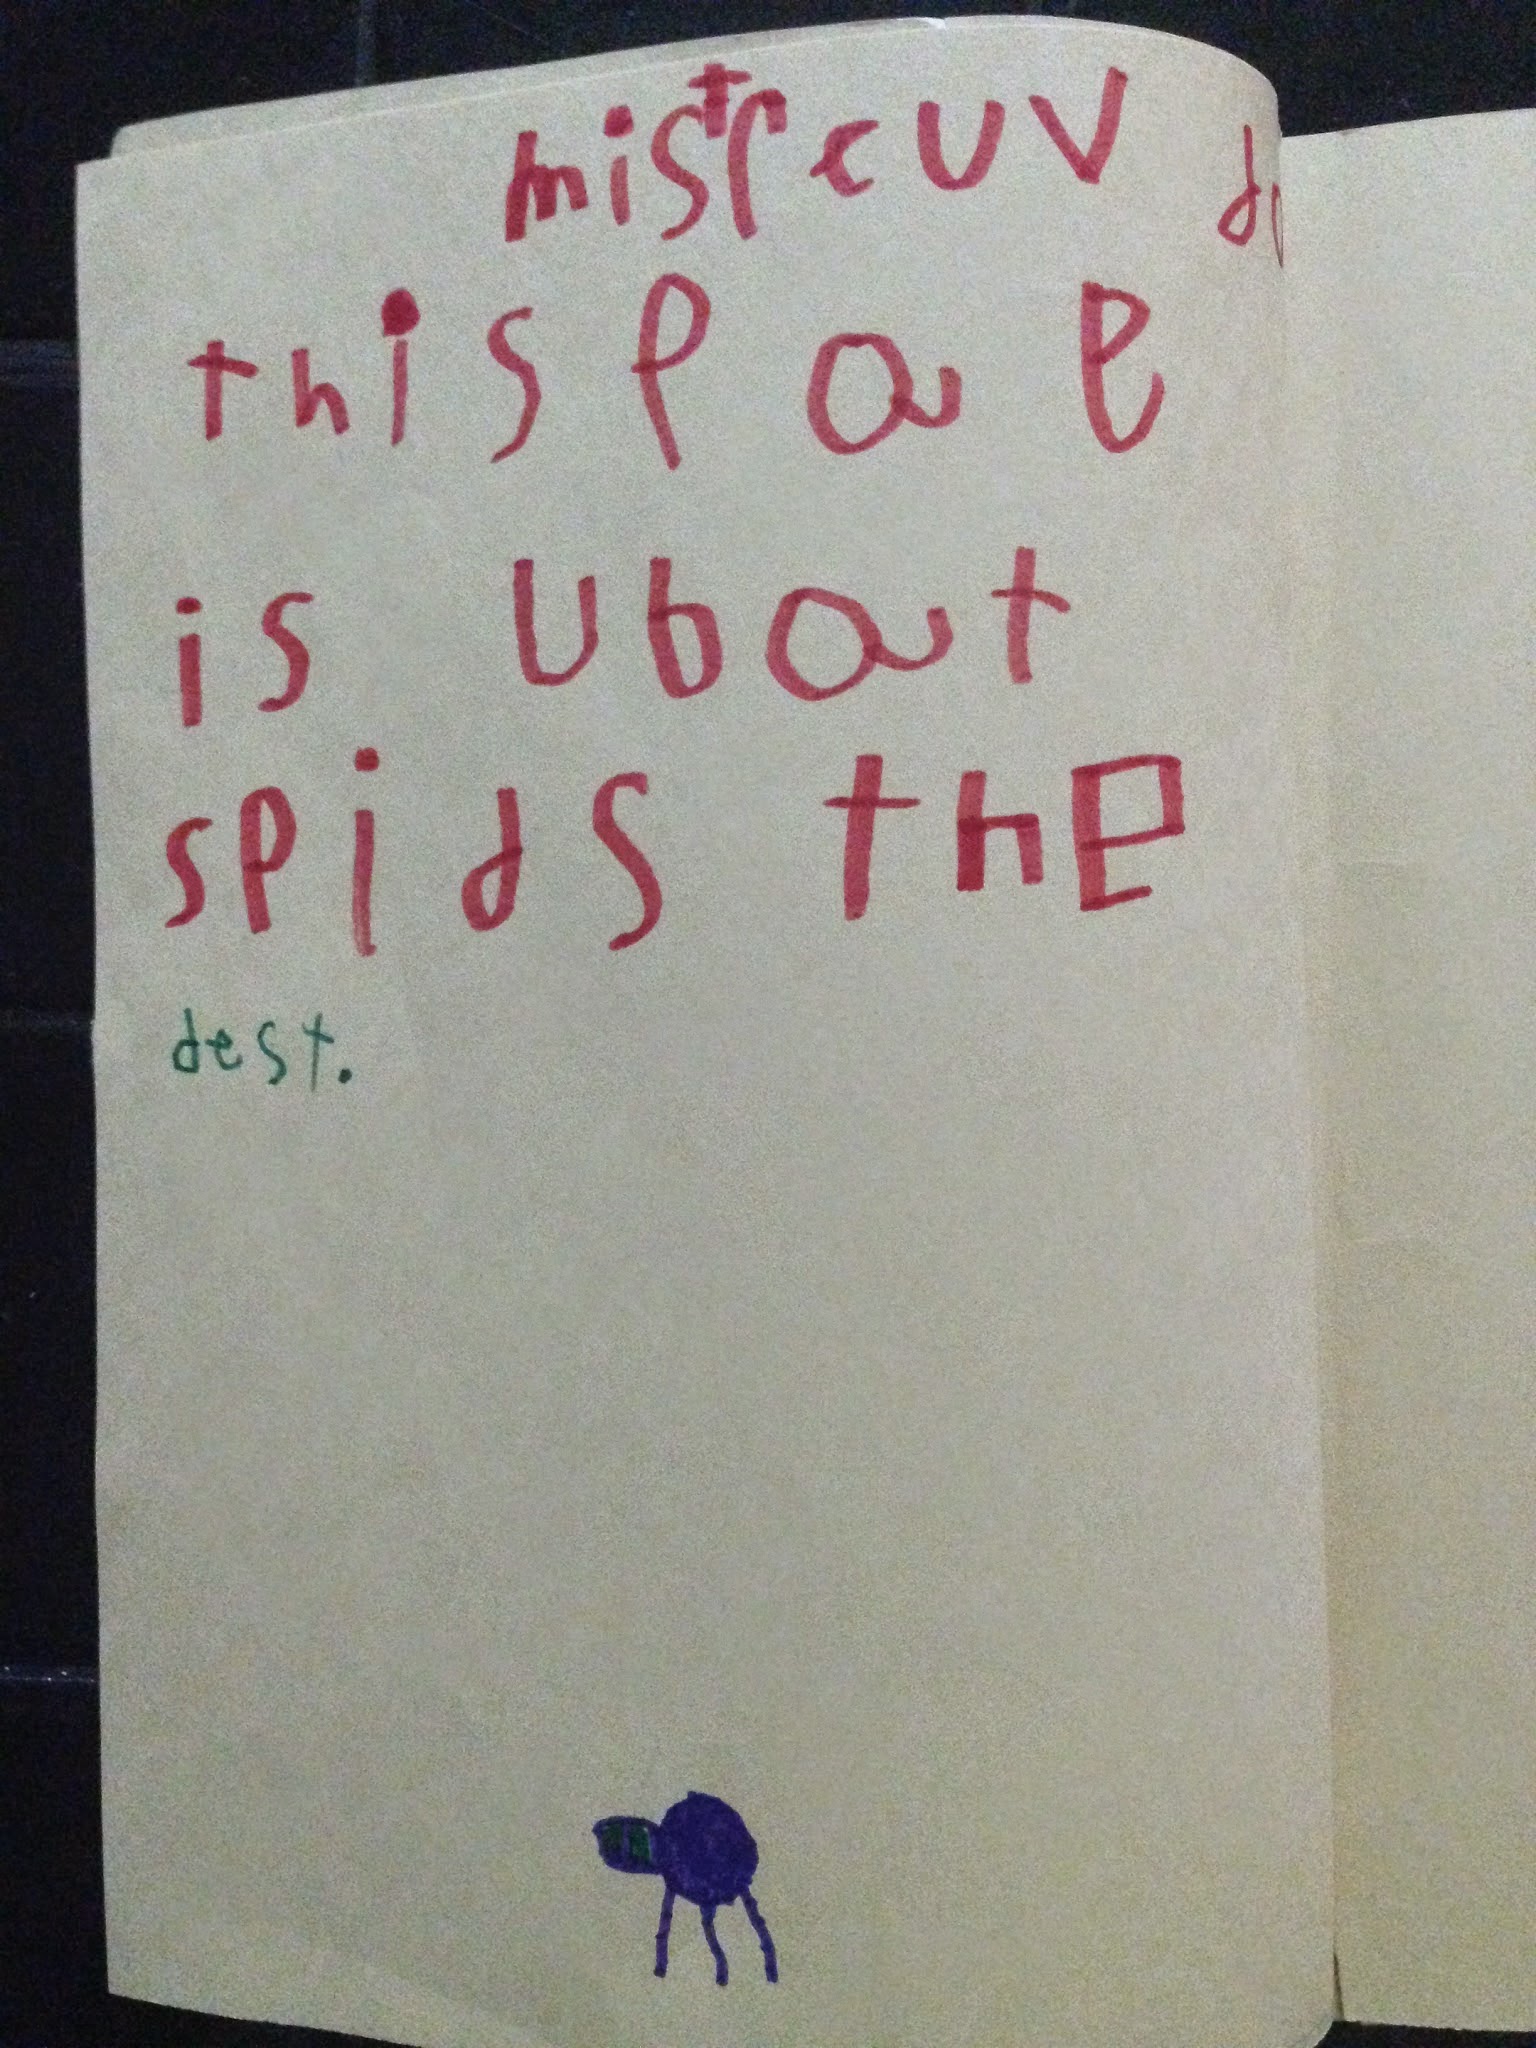 mistrcuv do
this Pae
is ubat
spids the
dest.